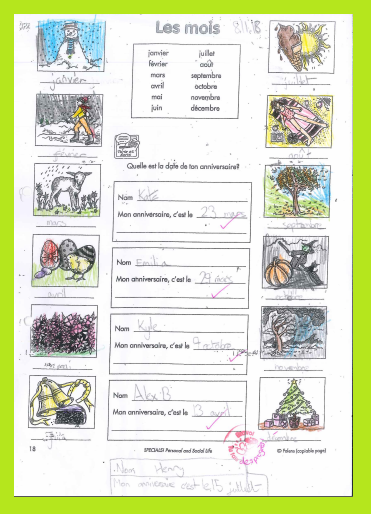 Les mois 8/1/18
janvier juillet
février août
mars septembre
avril octobre
mai novembre
juin décembre
janvier
juillet
février
août
mars
septembre
avril
octobre
mai
novembre
juin
décembre
Quelle est la date de ton anniversaire?
Nom Kate
Mon anniversaire, c'est le 23 mars
Nom Emilia
Mon anniversaire, c'est le 29 mars
Nom Kyle
Mon anniversaire, c'est le 9 octobre
Nom Alex B
Mon anniversaire, c'est le 3 avril
18 SPECIALS! Personal and Social Life © Folens (copiable page)
Nom Henry
Mon anniversaire c'est le 15 juillet